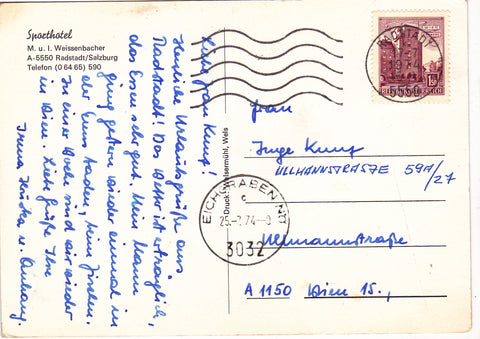 Sporthotel
M. u. I. Weissenbacher
A-5550 Radstadt/Salzburg
Telefon (0 64 65) 590
Liebe Frau Kunz!
Herzliche Urlaubsgrüße aus
Radstadt! Das Wetter ist erträglich,
das Essen sehr gut. Mein Mann
ging gestern wieder einmal in
der Enns baden, beim Fischen.
In einer Woche sind wir wieder
in Wien. Liebe Grüße Ihre
Irma u. Anhang.
Druck: Welsermühl, Wels
RADSTADT
5550
REPUBLIK ÖSTERREICH
EICHGRABEN NÖ
c
74
3032
Frau
Inge Kunz
ULLMANNSTRASZE 59A/27
Ullmannstraße
A 1150 Wien 15.,